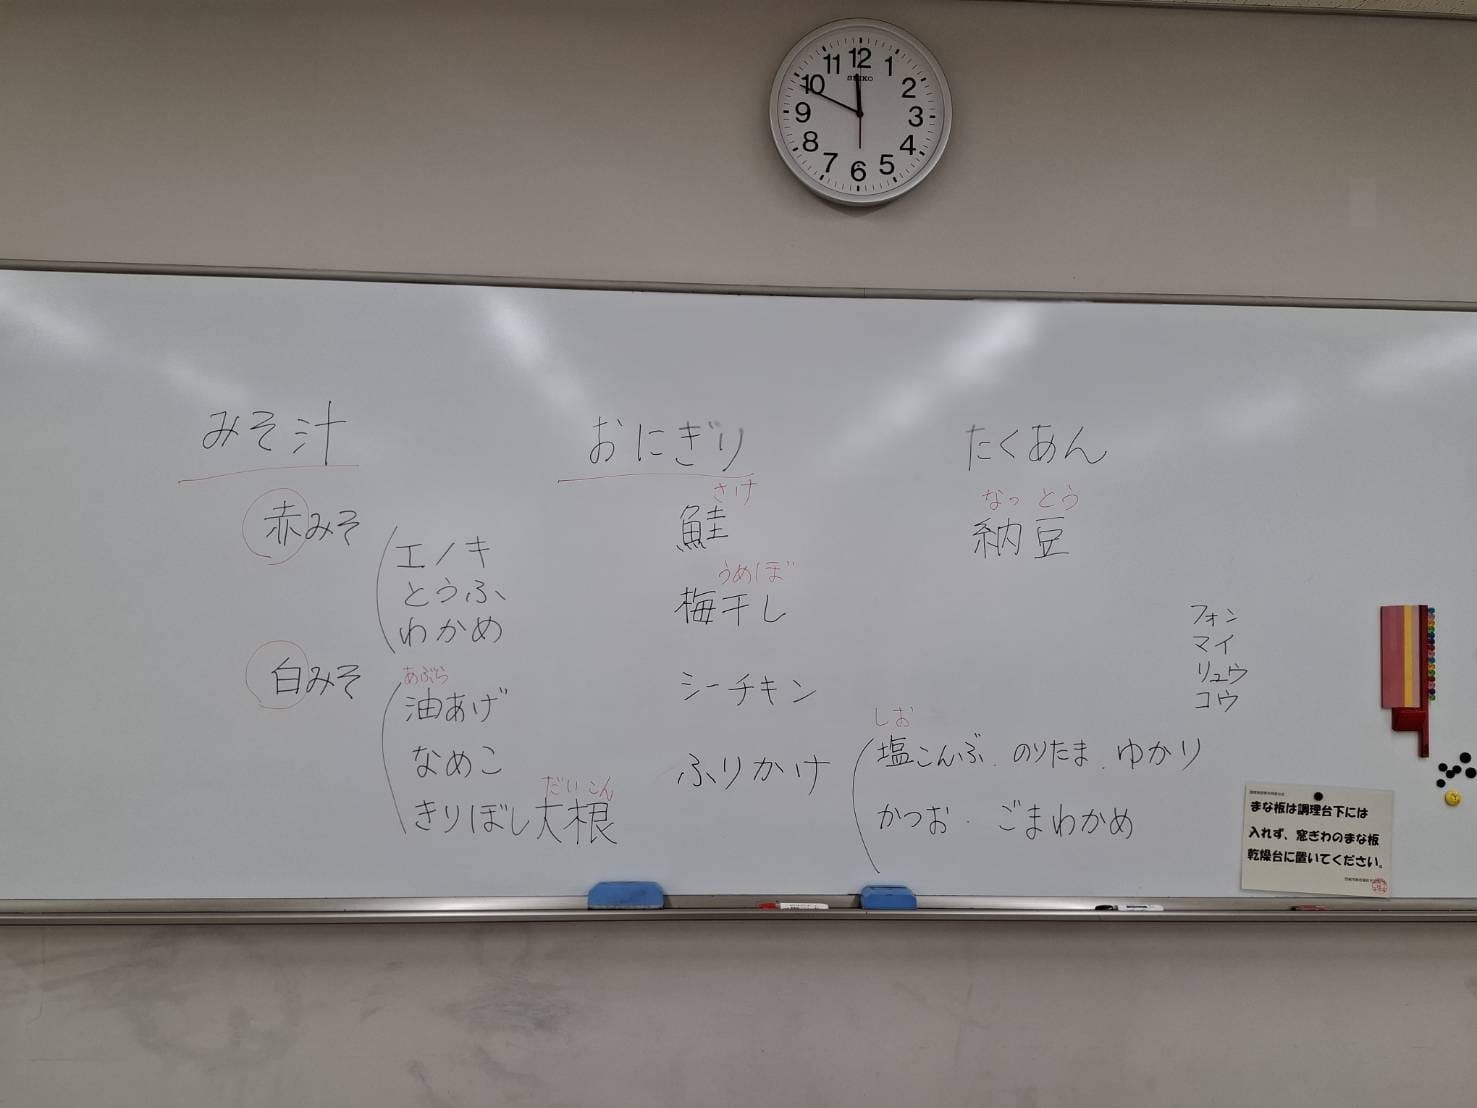 12
11 1
10 2
9 3
8 4
7 5
6
SEIKO
みそ汁
赤みそ
エノキ
とうふ
わかめ
白みそ
あぶら
油あげ
なめこ
だいこん
きりぼし大根
おにぎり
さけ
鮭
うめぼ
梅干し
シーチキン
ふりかけ
しお
塩こんぶ.のりたま.ゆかり
かつお.ごまわかめ
たくあん
なっとう
納豆
フォン
マイ
リュウ
コウ
まな板は調理台下には
入れず、窓ぎわのまな板
乾燥台に置いてください。